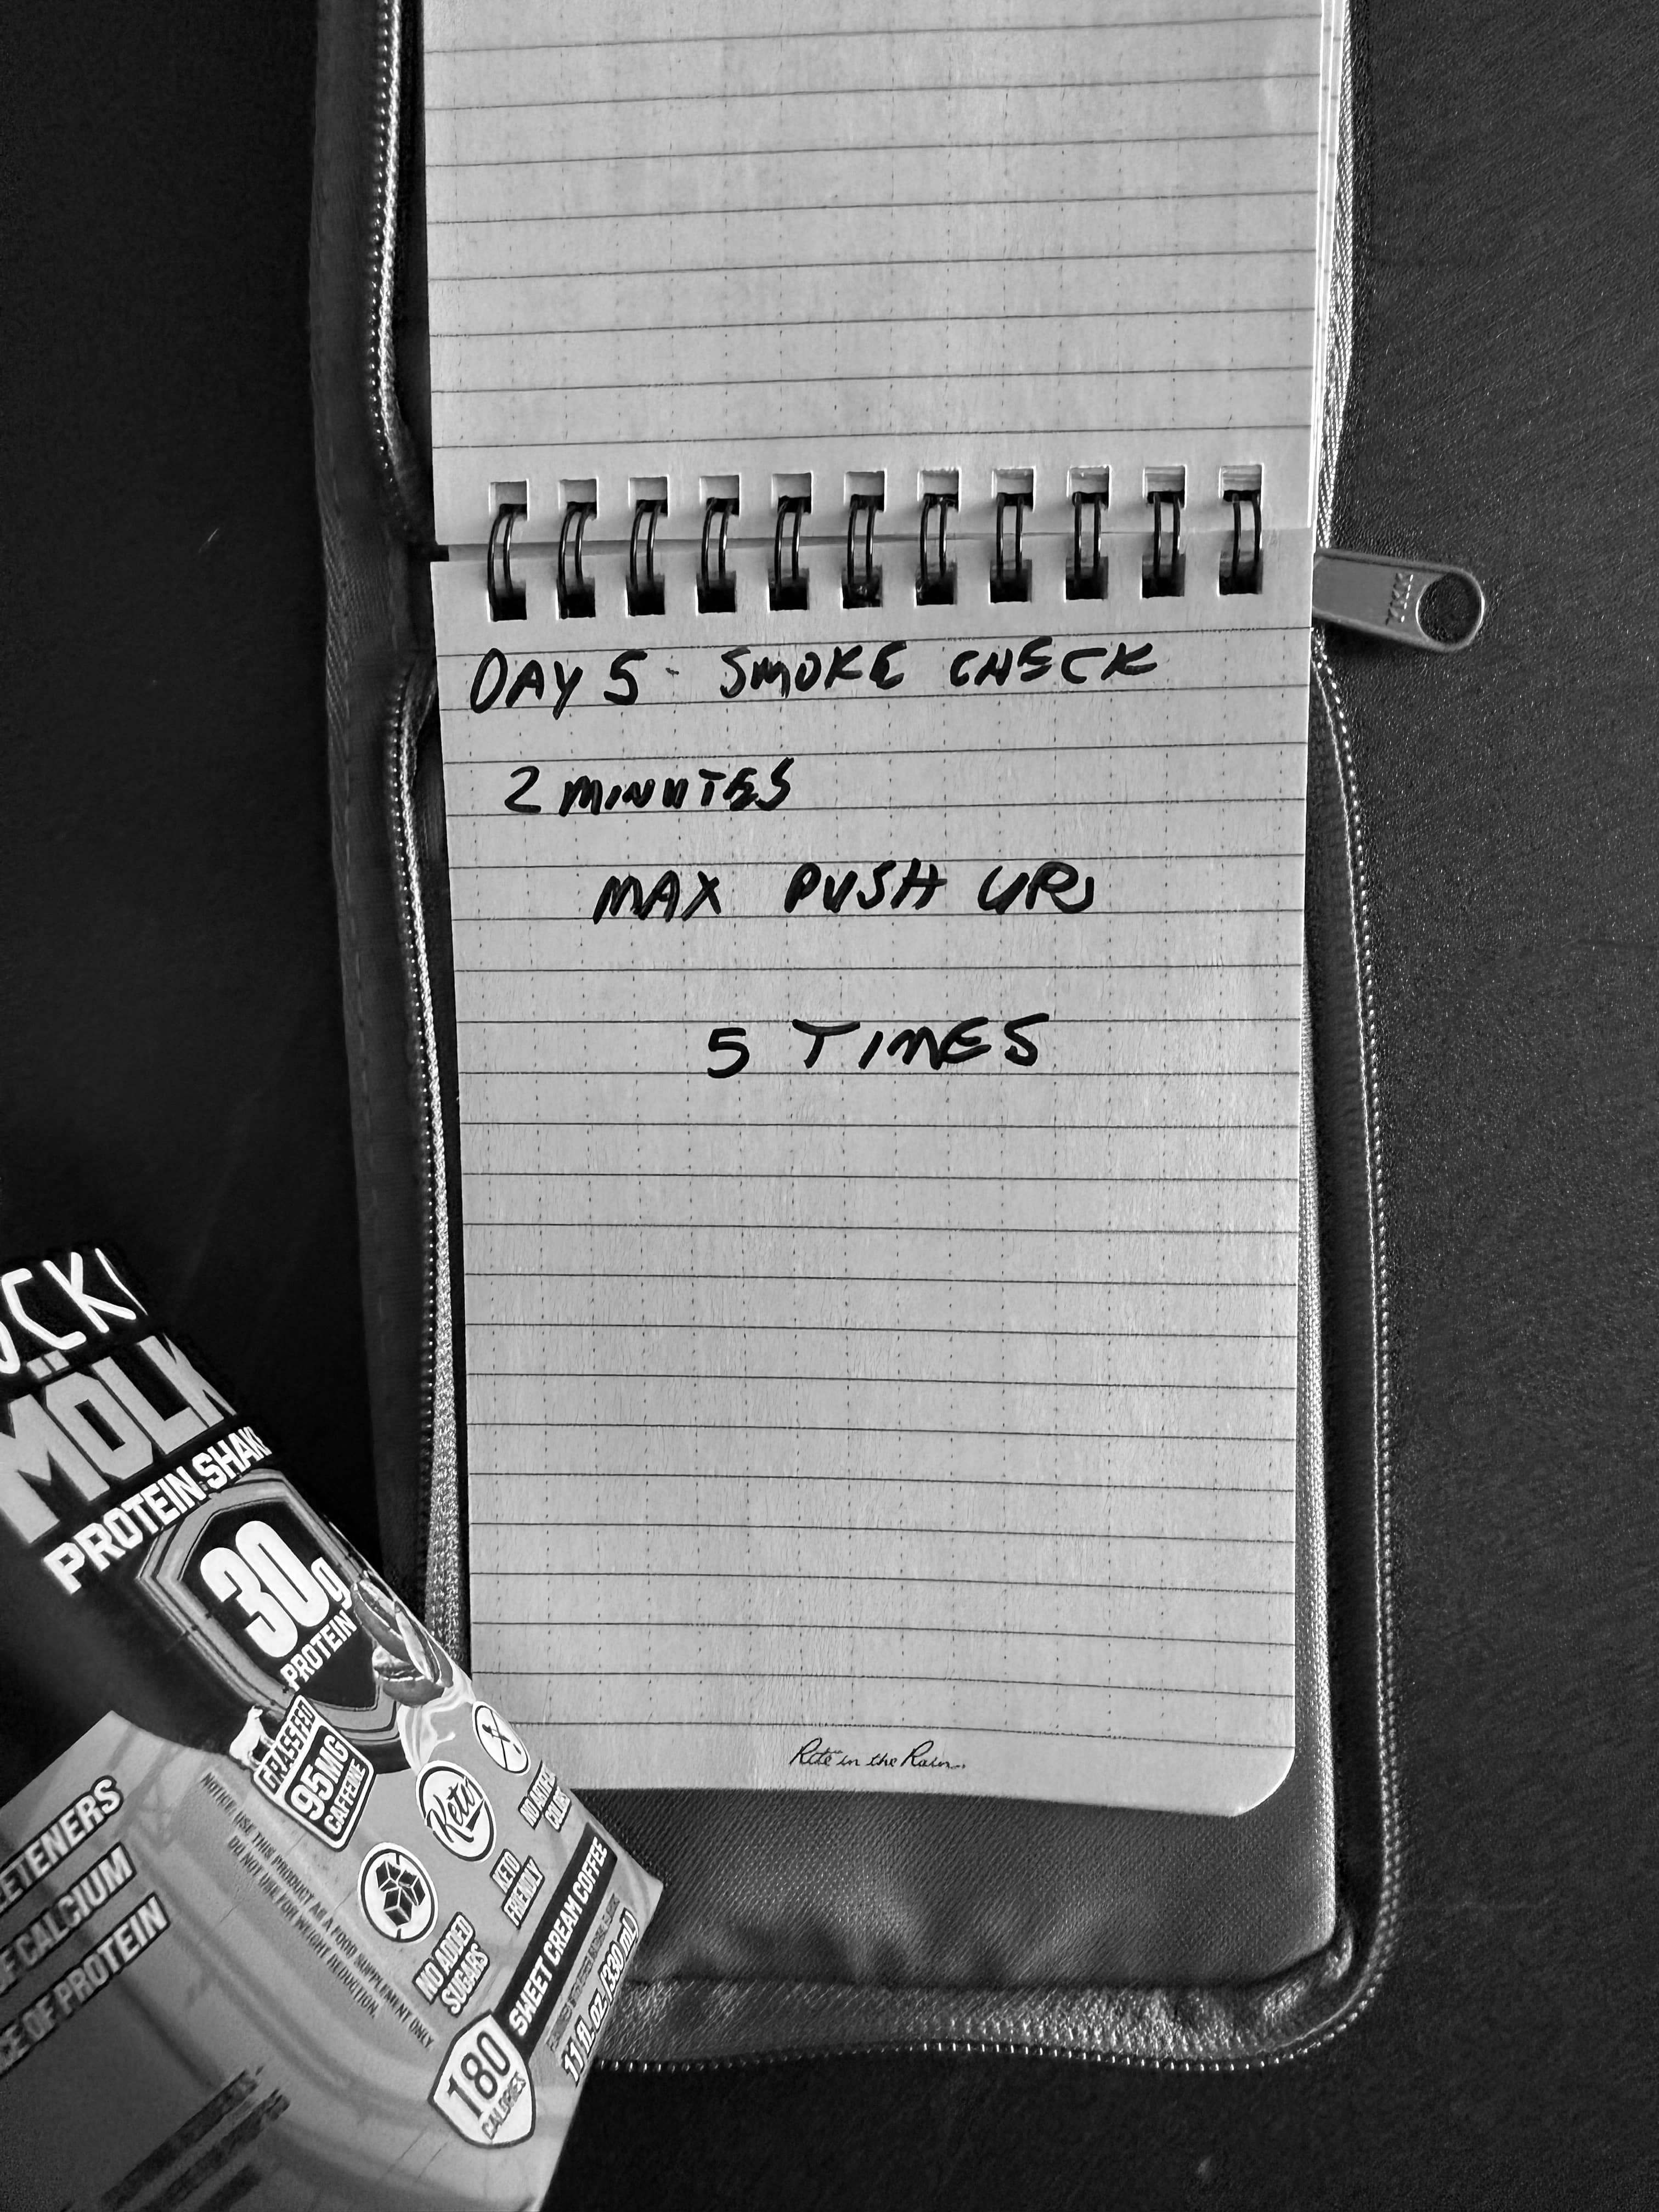 YKK
DAY 5 - SMOKE CHECK
2 MINUTES
MAX PUSH UPS
5 TIMES
Rite in the Rain
MÖLK
PROTEIN SHAKE
30g
PROTEIN
GRASSFED
95MG
CAFFEINE
Keto
KETO
FRIENDLY
NO ADDED
SUGARS
NOTICE: USE THIS PRODUCT AS A FOOD SUPPLEMENT ONLY.
DO NOT USE FOR WEIGHT REDUCTION.
SWEET CREAM COFFEE
11 fl. oz. (330 mL)
180
CALORIES
CALCIUM
OF PROTEIN